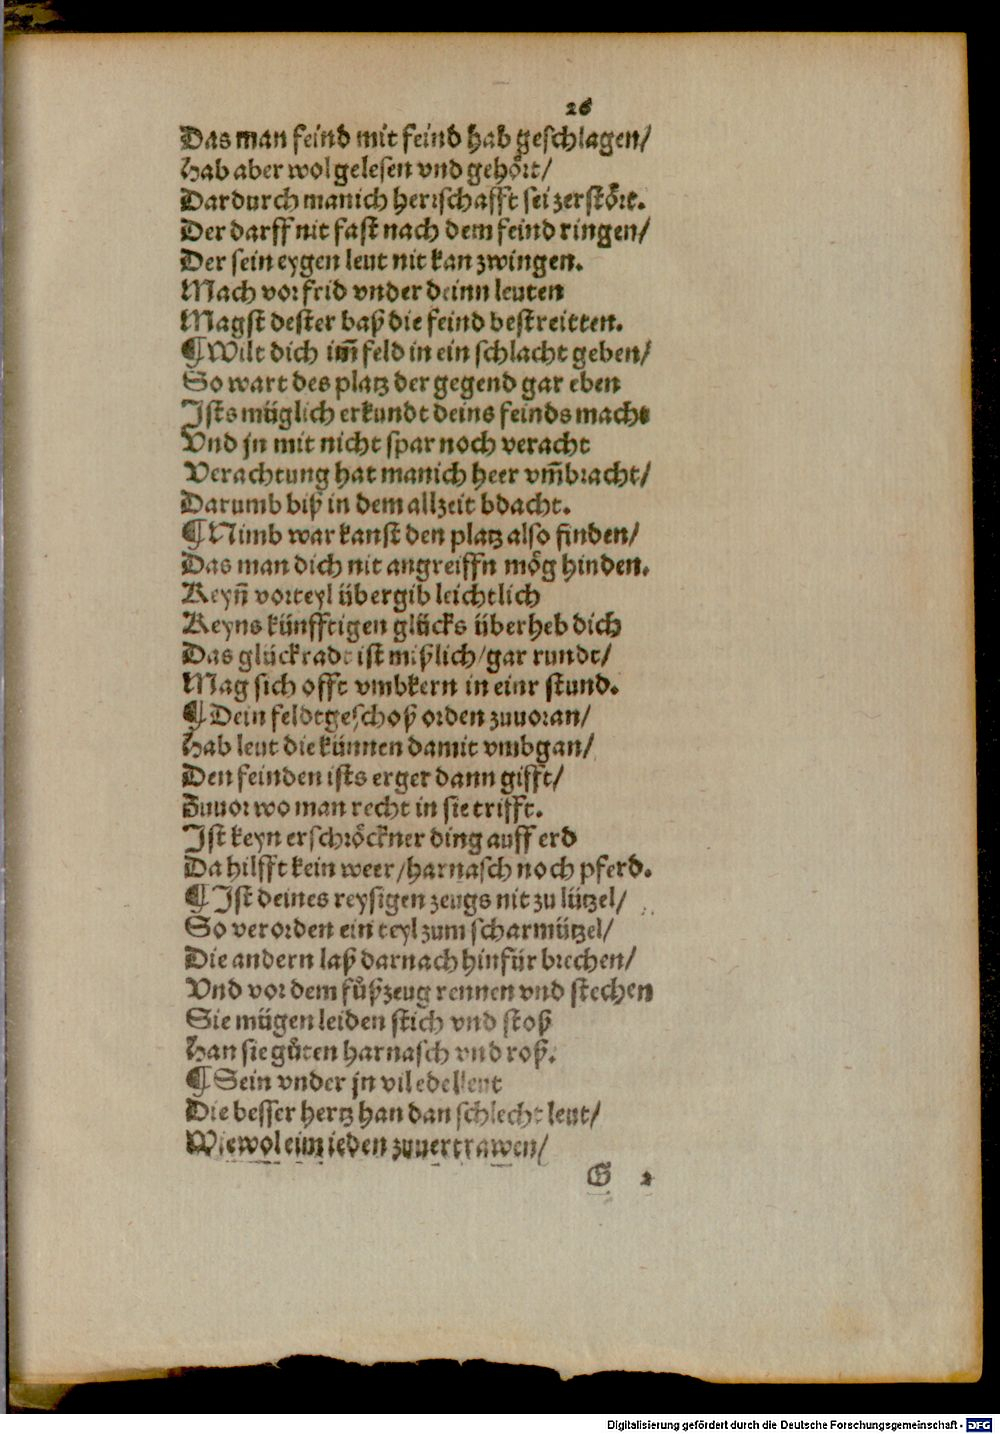 26
Das man feind mit feind hab geschlagen/
Hab aber wol gelesen vnd gehört/
Dardurch manich herrschafft sei zerstört.
Der darff nit fast nach dem feind ringen/
Der sein eygen leut nit kan zwingen.
Mach vor frid vnder deinn leuten
Magst dester baß die feind bestreitten.
¶ Wilt dich im̄ feld in ein schlacht geben/
So wart des platz der gegend gar eben
Ists müglich erkundt deins feinds macht
Vnd jn mit nicht spar noch veracht
Verachtung hat manich heer vm̄bracht/
Darumb biß in dem allzeit bdacht.
¶ Nimb war kanst den platz also finden/
Das man dich nit angreiffn mög hinden.
Keyn̄ vorteyl übergib leichtlich
Keyns künfftigen glücks überheb dich
Das glückradt ist mißlich/gar rundt/
Mag sich offt vmbkern in einr stund.
¶ Dein feldtgeschoß orden zuuoran/
Hab leut die künnen damit vmbgan/
Den feinden ists erger dann gifft/
Zuuor wo man recht in sie trifft.
Ist keyn erschröckner ding auff erd
Da hilfft kein weer/harnasch noch pferd.
¶ Ist deines reysigen zeugs nit zu lützel/
So verorden ein teyl zum scharmützel/
Die andern laß darnach hinfür brechen/
Vnd vor dem fůßzeug rennen vnd stechen
Sie mügen leiden stich vnd stoß
Han sie gůten harnasch vnd roß.
¶ Sein vnder jn vil edel leut
Die besser hertz han dan schlecht leut/
Wiewol eim ieden zuuertrawen/
G 2
Digitalisierung gefördert durch die Deutsche Forschungsgemeinschaft - DFG